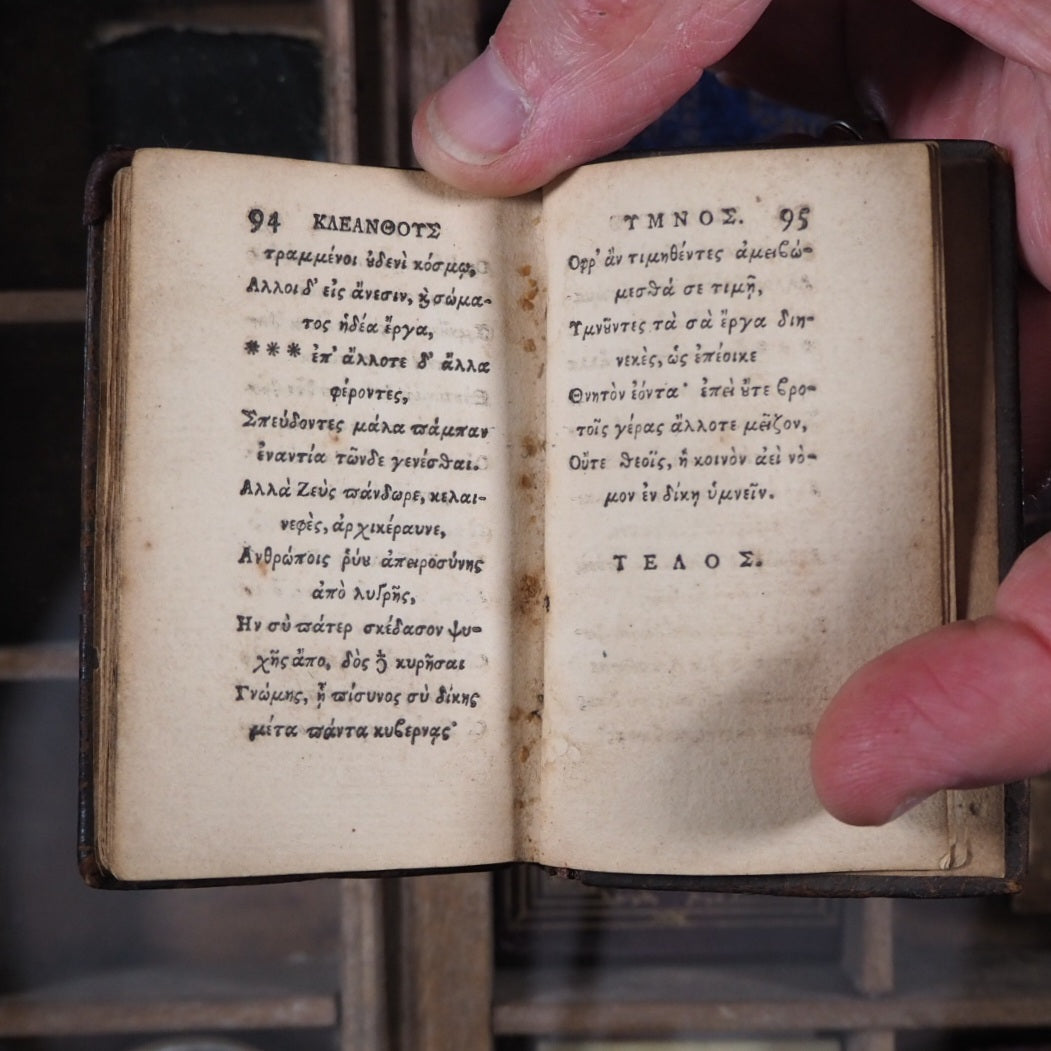 94 ΚΛΕΑΝΘΟΥΣ
τραμμένοι ȣ̓δενὶ κόσμῳ,
Αλλοι δ' εἰς ἄνεσιν, ϗ σώμα-
τος ἡδέα ἔργα,
*** ἐπ' ἄλλοτε δ' ἄλλα
φέροντες,
Σπεύδοντες μάλα ϖάμπαν
ἐναντία τῶνδε γενέσθαι.
Αλλὰ Ζεὺς ϖάνδωρε, κελαι-
νεφὲς, ἀρχικέραυνε,
Ανθρώποις ῥύȣ ἀπειροσύνης
ἀπὸ λυγρῆς,
Ην σὺ ϖάτερ σκέδασον ψυ-
χῆς ἄπο, δὸς δὲ κυρῆσαι
Γνώμης, ᾗ ϖίσυνος σὺ δίκης
μέτα ϖάντα κυϐερνᾷς·
ΥΜΝΟΣ. 95
Οφρ' ἂν τιμηθέντες ἀμειϐώ-
μεσθά σε τιμῇ,
Υμνȣ͂ντες τὰ σὰ ἔργα διη-
νεκὲς, ὡς ἐπέοικε
Θνητὸν ἐόντα· ἐπεὶ ȣ̓́τε ϐρο-
τοῖς γέρας ἄλλοτε μεῖζον,
Οὔτε θεοῖς, ἢ κοινὸν ἀεὶ νό-
μον ἐν δίκῃ ὑμνεῖν.
ΤΕΛΟΣ.